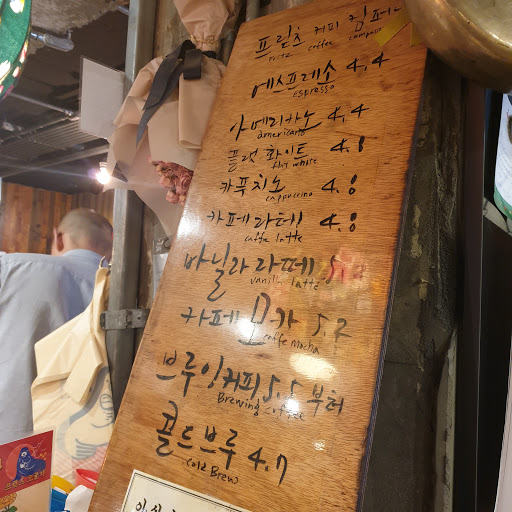 프릳츠 커피 컴퍼니
Fritz coffee company
에스프레소 4.4
espresso
아메리카노 4.4
americano
플랫 화이트 4.8
flat white
카푸치노 4.8
cappuccino
카페라떼 4.8
caffe latte
바닐라라떼
vanilla latte
카페모카 5.2
caffe mocha
브루잉커피 5.5 부터
Brewing coffee
콜드브루 4.7
Cold Brew